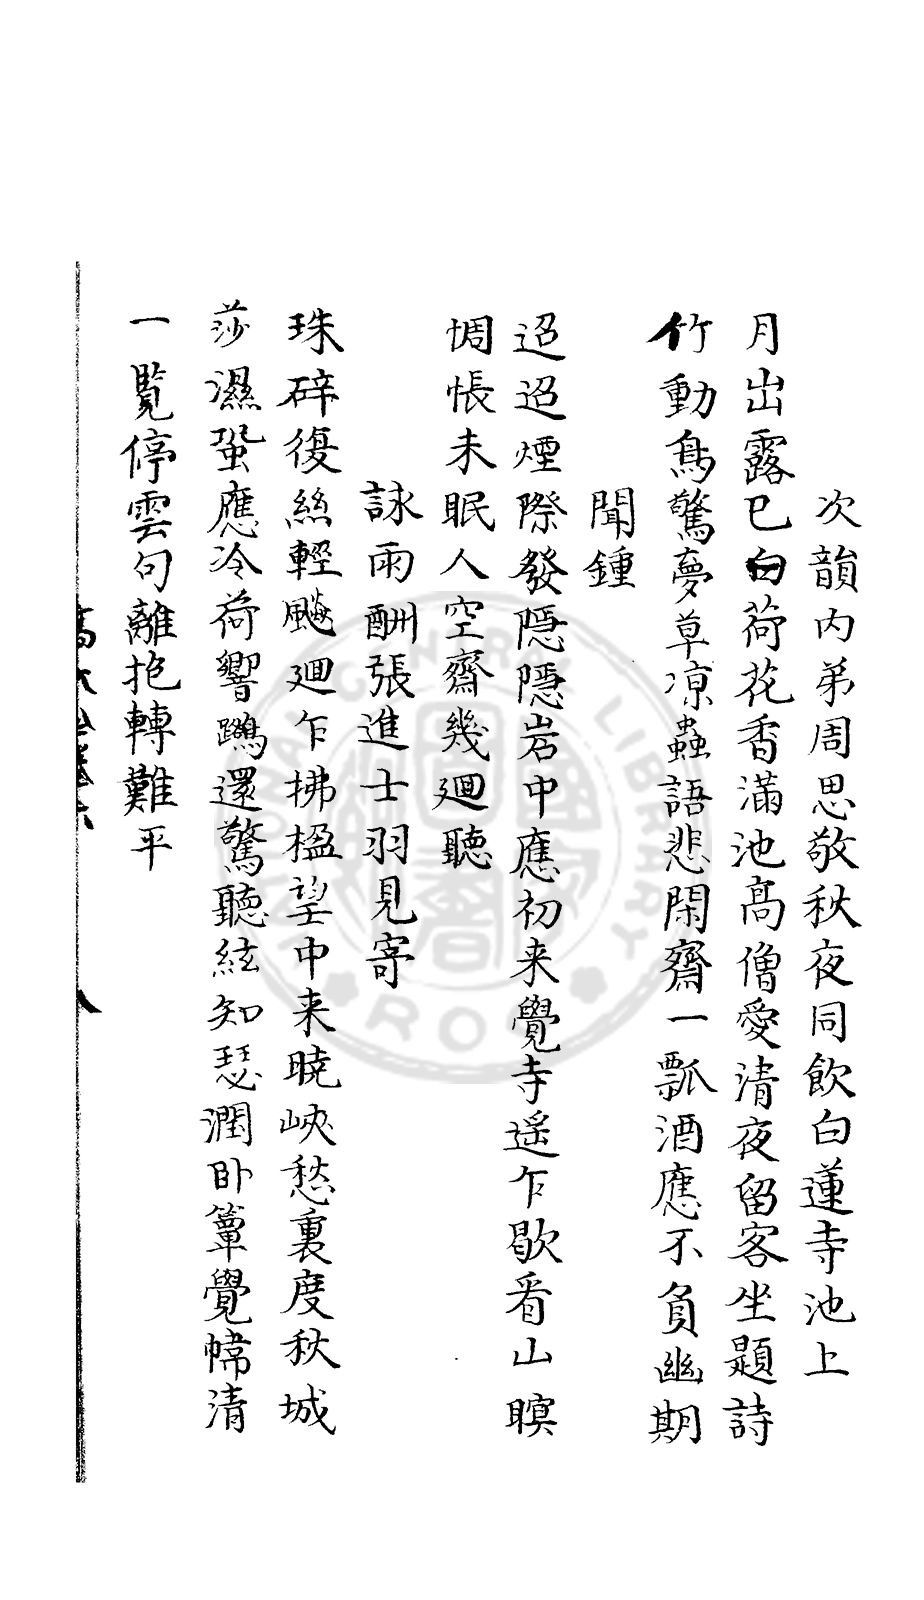 次韻内弟周思敬秋夜同飲白蓮寺池上
月出露已白荷花香滿池高僧愛清夜留客坐題詩
竹動鳥驚夢草凉蟲語悲閑齋一瓢酒應不負幽期
聞鍾
迢迢煙際發隱隱岩中應初来覺寺遥乍歇看山暝
惆悵未眠人空齋幾廻聽
詠雨酬張進士羽見寄
珠碎復絲輕飈廻乍拂楹望中来曉峽愁裏度秋城
莎濕蛩應冷荷響鷁還驚聽絃知瑟潤卧簟覺幃清
一覧停雲句離抱轉難平
八
NATIONAL CENTRAL LIBRARY